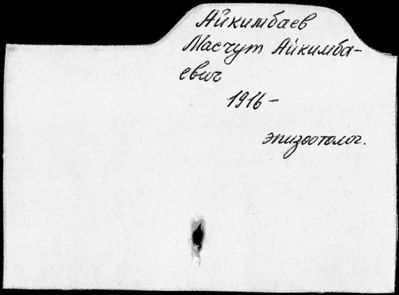 Айкимбаев
Масчут Айкимба-
евич
1916 -
эпизоотолог.